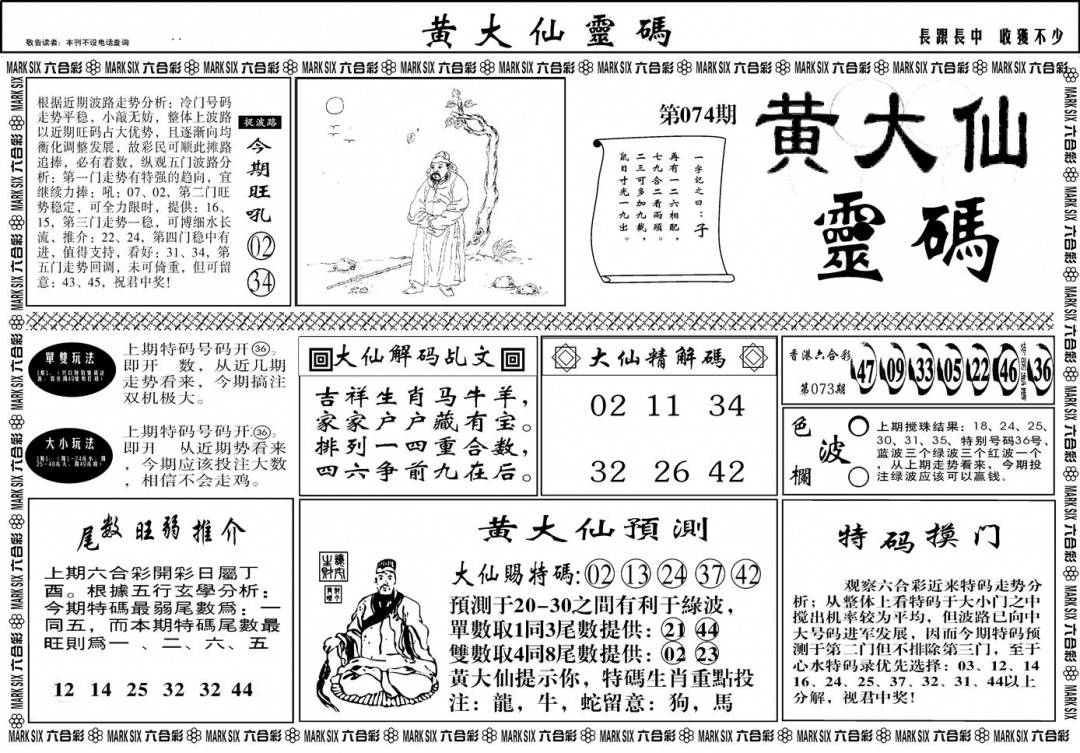 敬告读者：本刊不设电话查询
黄大仙靈碼
長跟長中 收獲不少
MARK SIX 六合彩 MARK SIX 六合彩 MARK SIX 六合彩 MARK SIX 六合彩 MARK SIX 六合彩 MARK SIX 六合彩 MARK SIX 六合彩 MARK SIX 六合彩 MARK SIX 六合彩 MARK SIX 六合彩 MARK SIX 六合彩
根据近期波路走势分析：冷门号码
走势平稳，小敲无妨，整体上波路
以近期旺码占大优势，且逐渐向均
衡化调整发展，故彩民可顺此摊路
追捧，必有着数，纵观五门波路分
析：第一门走势有特强的趋向，宜
继续力捧：吼：07、02，第二门旺
势稳定，可全力限时，提供：16、
15，第三门走势一稳，可博细水长
流，推介：22、24，第四门稳中有
进，值得支持，看好：31、34，第
五门走势回调，未可倚重，但可留
意：43、45，祝君中奖！
捉波路
今期旺吼
02
34
第074期
一字記之曰：子
再有一二六相配，
七九合二看兩頭。
二三可多加九截，
鼠目寸光一九出。
黄大仙
靈碼
單雙玩法
上期特码号码开㊱。
即开　数，从近几期
走势看来，今期搞注
双机极大。
大小玩法
上期特码号码开㊱。
即开　从近期势看来
，今期应该投注大数
，相信不会走鸡。
大仙解码乩文
吉祥生肖马牛羊，
家家户户藏有宝。
排列一四重合数，
四六争前九在后。
大仙精解碼
02 11 34
32 26 42
香港六合彩
第073期
47 09 33 05 22 46 特别號碼 36
色波欄
上期搅珠结果：18、24、25、
30、31、35、特别号码36号、
蓝波三个绿波三个红波一个
，从上期走势看来，今期投
注绿波应该可以赢钱。
尾数旺弱推介
上期六合彩開彩日屬丁
酉。根據五行玄學分析：
今期特碼最弱尾數爲：一
同五，而本期特碼尾數最
旺則爲一、二、六、五
12 14 25 32 32 44
黄大仙預測
大仙賜特碼：02 13 24 37 42
預測于20-30之間有利于綠波，
單數取1同3尾數提供：21 44
雙數取4同8尾數提供：02 23
黄大仙提示你，特碼生肖重點投
注：龍，牛，蛇留意：狗，馬
特码摸门
观察六合彩近来特码走势分
析；从整体上看特码于大小门之中
搅出机率较为平均，但波路已向中
大号码进军发展，因而今期特码预
测于第二门但不排除第三门，至于
心水特码录优先选择：03、12、14
16、24、25、37、32、31、44以上
分解，祝君中奖！
MARK SIX 六合彩 MARK SIX 六合彩 MARK SIX 六合彩 MARK SIX 六合彩 MARK SIX 六合彩 MARK SIX 六合彩 MARK SIX 六合彩 MARK SIX 六合彩 MARK SIX 六合彩 MARK SIX 六合彩 MARK SIX 六合彩